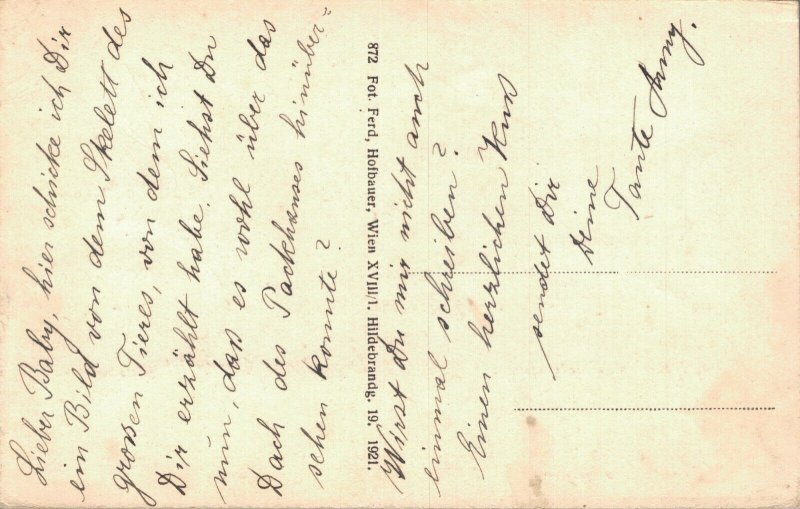 Lieber Baby, hier schicke ich Dir
ein Bild von dem Skelett des
grossen Tieres, von dem ich
Dir erzählt habe. Siehst Du
nun, daß es wohl über das
Dach des Packhauses hinüber-
sehen konnte?
872 Fot. Ferd, Hofbauer, Wien XVIII/1. Hildebrandg. 19. 1921.
Wirst Du mir nicht auch
einmal schreiben?
Einen herzlichen Kuß
sendet Dir
Deine
Tante Anny.